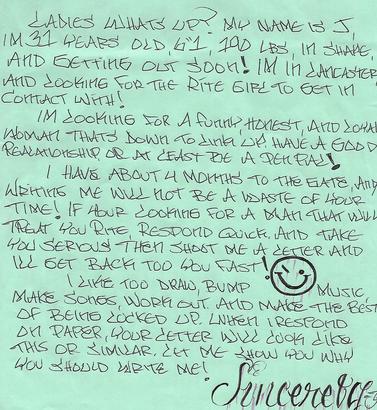 LADIES WHATS UP? MY NAME IS J,
IM 31 YEARS OLD, 6'1, 190 LBS, IN SHAPE,
AND GETTING OUT SOON! IM IN LANCASTER
AND LOOKING FOR THE RITE GIRL TO GET IN
CONTACT WITH!
IM LOOKING FOR A FUNNY, HONEST, AND LOYAL
WOMAN THATS DOWN TO LINK UP HAVE A GOOD
REALATIONSHIP OR AT LEAST BE A PEN PAL!
I HAVE ABOUT 4 MONTHS TO THE GATE, AND
WRITING ME WILL NOT BE A WASTE OF YOUR
TIME! IF YOUR LOOKING FOR A MAN THAT WILL
TREAT YOU RITE, RESPOND QUICK, AND TAKE
YOU SERIOUS THEN SHOOT ME A LETTER AND
ILL GET BACK TOO YOU FAST!
I LIKE TOO DRAW, BUMP MUSIC,
MAKE SONGS, WORK OUT, AND MAKE THE BEST
OF BEING LOCKED UP. WHEN I RESPOND
ON PAPER, YOUR LETTER WILL LOOK LIKE
THIS OR SIMILAR. LET ME SHOW YOU WHY
YOU SHOULD WRITE ME!
Sincerely